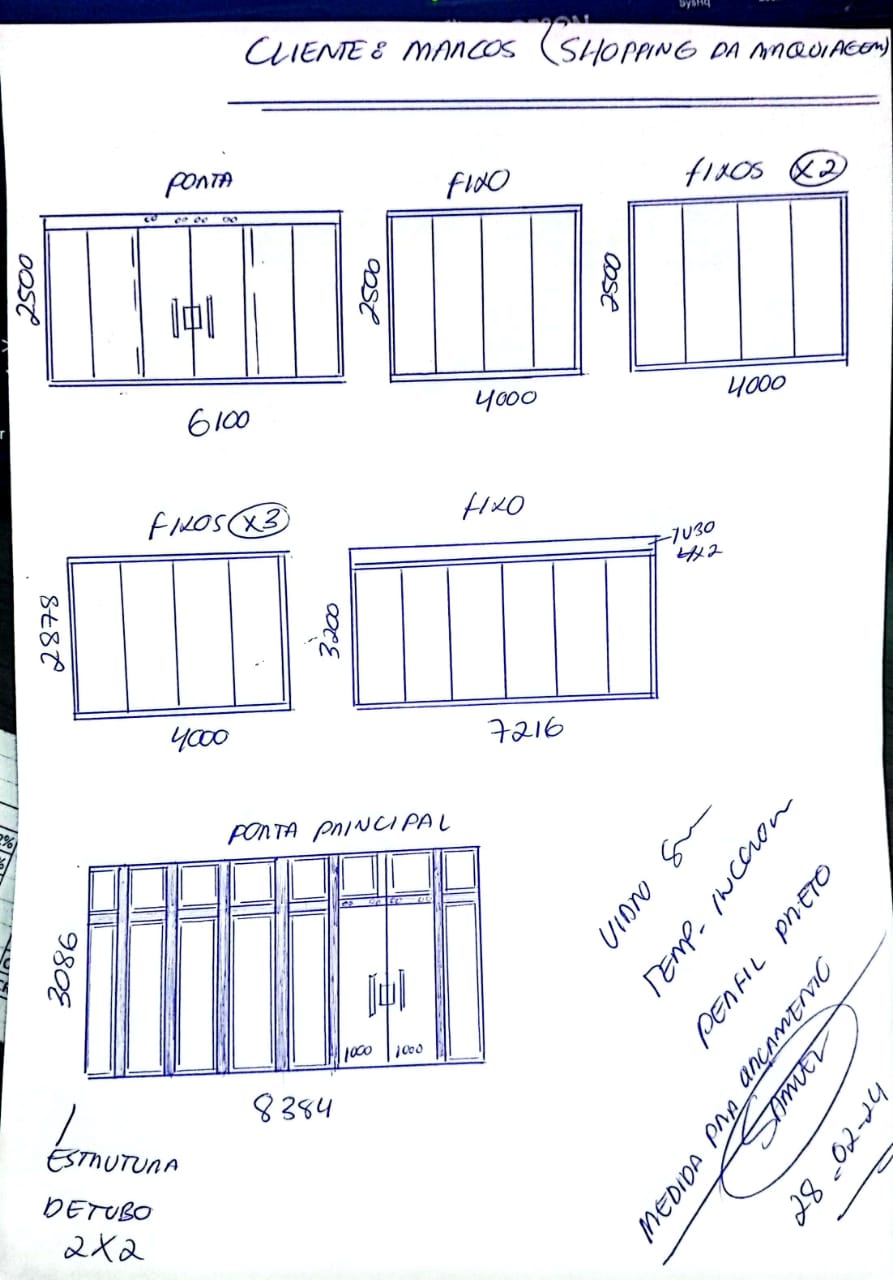 CLIENTE: MARCOS (SHOPPING DA MAQUIAGEM)
PORTA
2500
6100
FIXO
2500
4000
FIXOS X2
2500
4000
FIXOS X3
2878
4000
FIXO
TUBO
4X2
3200
7216
PORTA PRINCIPAL
3086
1000 1000
8384
ESTRUTURA
DE TUBO
2X2
VIDRO 8m
TEMP- INCOLOR
PERFIL PRETO
MEDIDA PRA ORÇAMENTO
SAMUEL
28-02-24